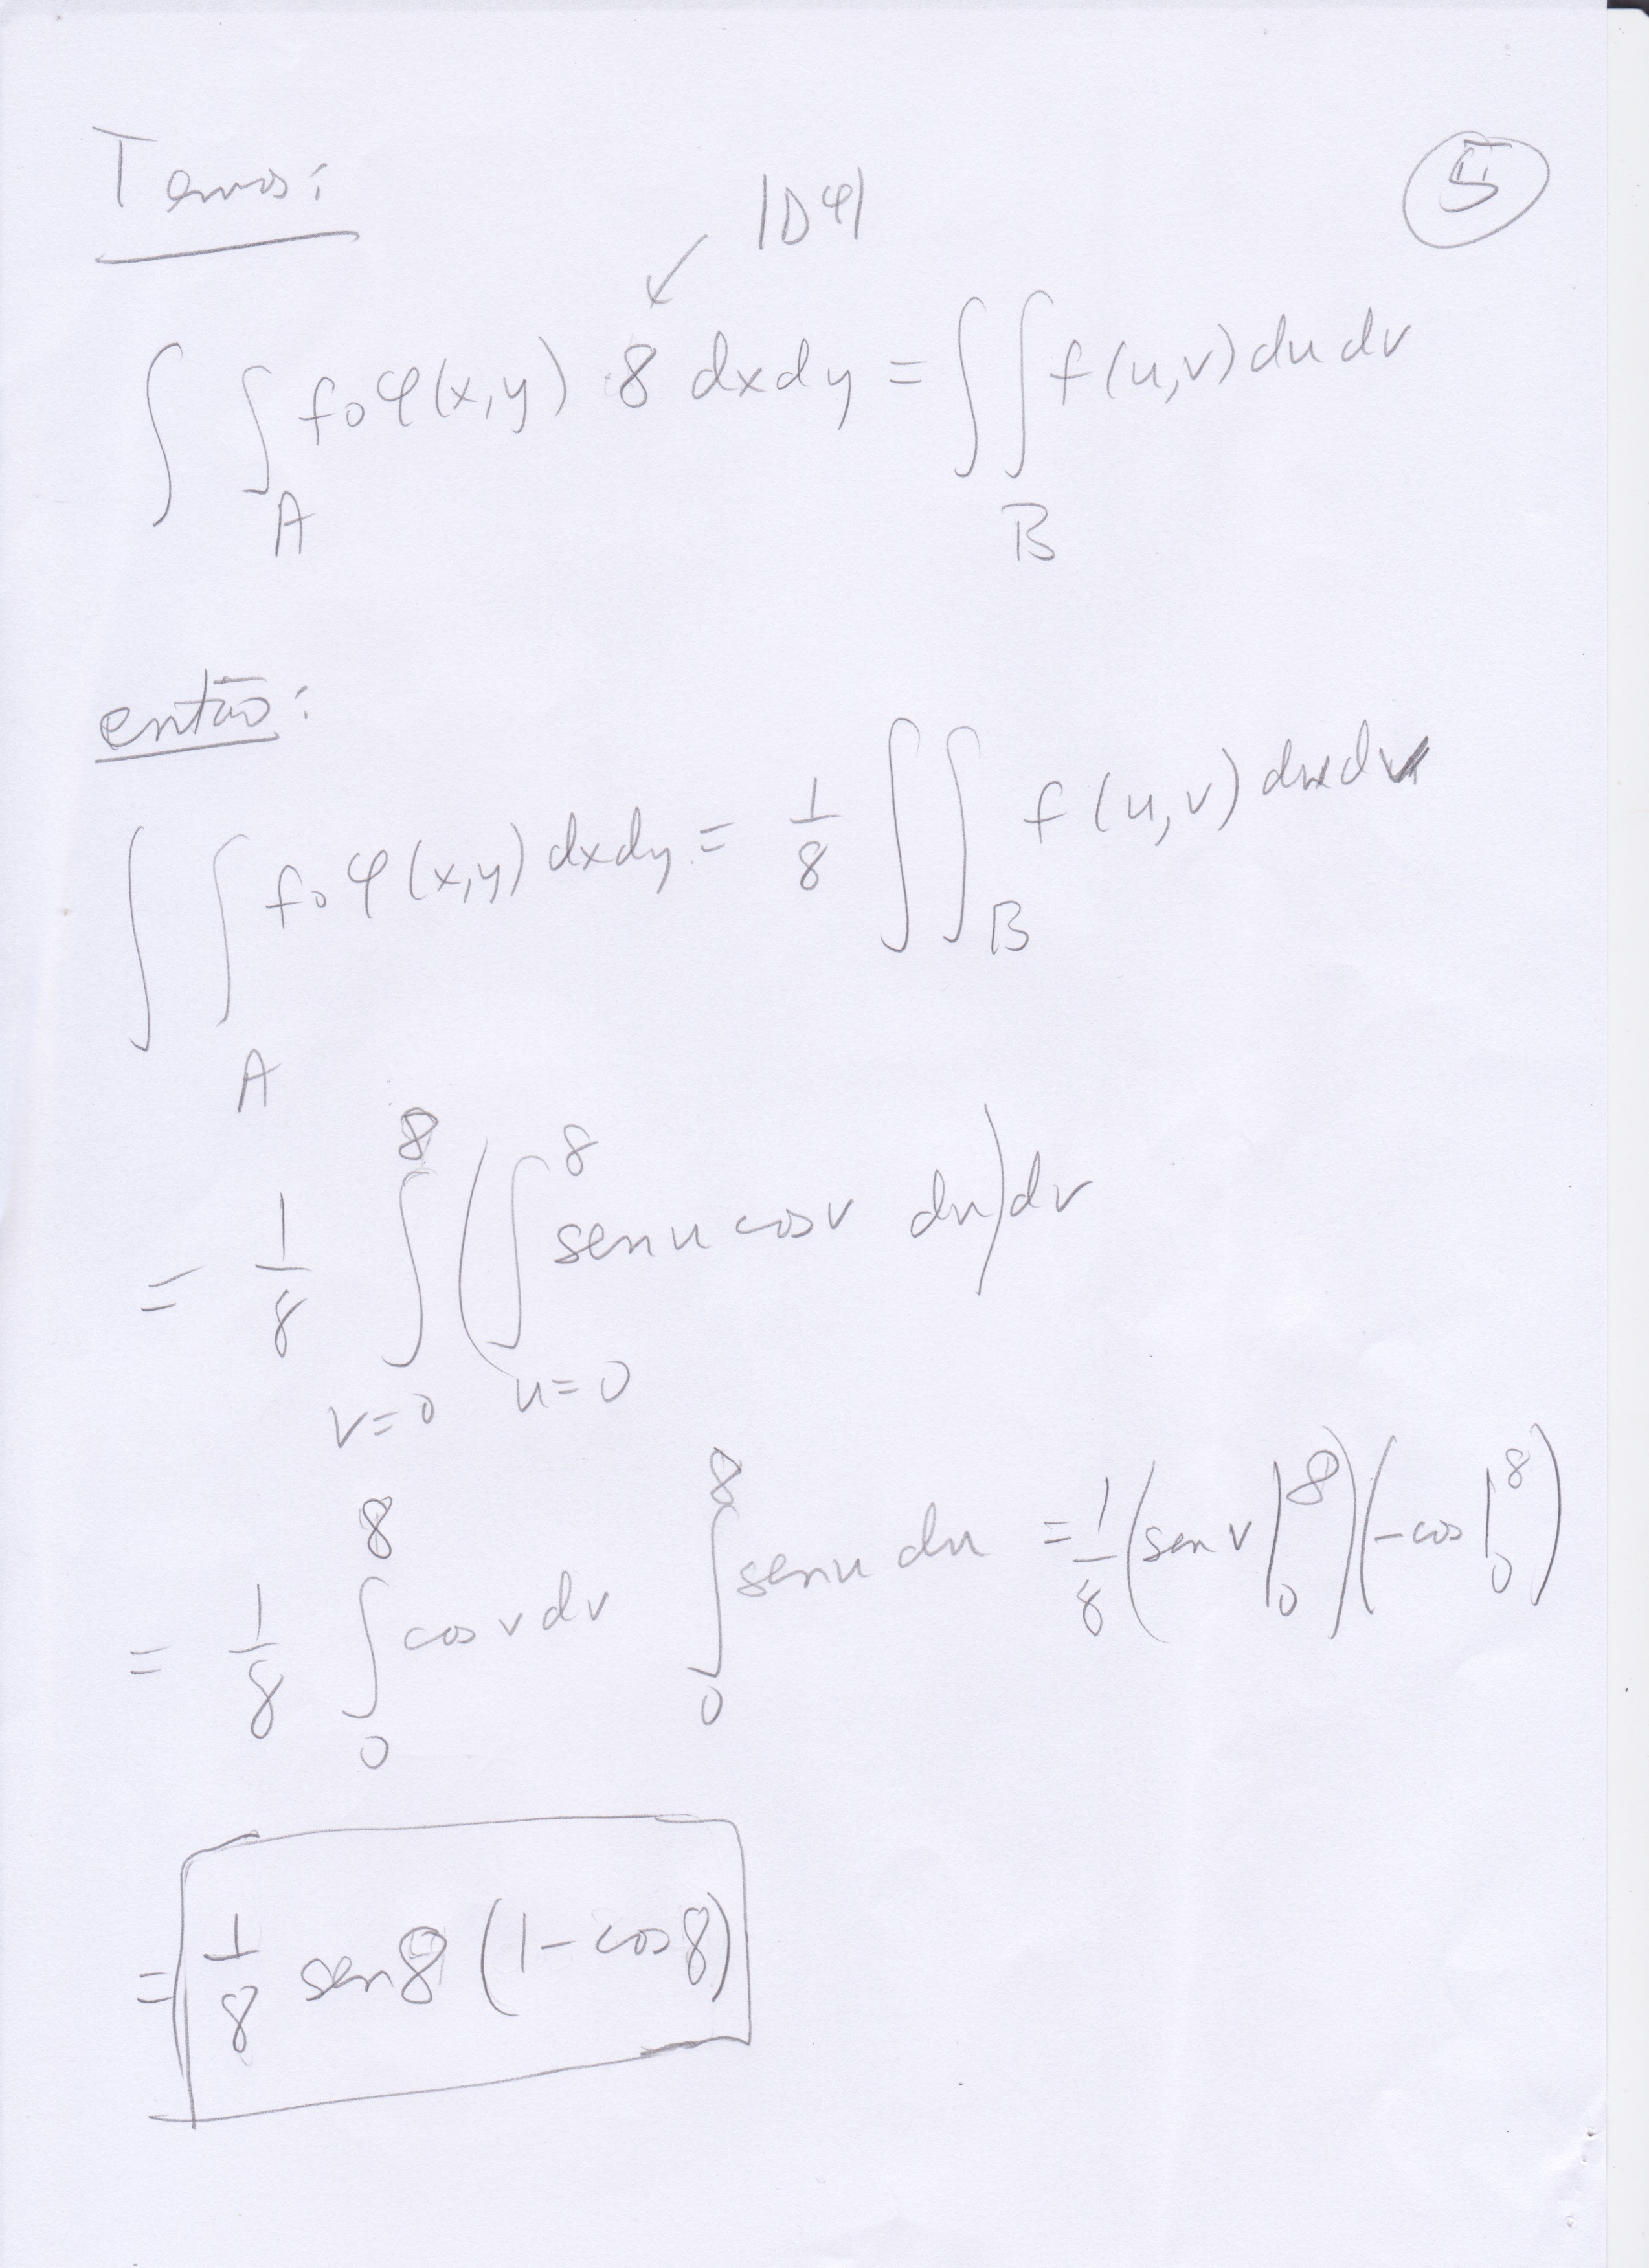 Temos:
5
|Dφ|
∫∫_A f∘φ(x,y) 8 dxdy = ∫∫_B f(u,v) du dv
então:
∫∫_A f∘φ(x,y) dxdy = 1/8 ∫∫_B f(u,v) du dv
= 1/8 ∫_{v=0}^{8} (∫_{u=0}^{8} sen u cos v du) dv
= 1/8 ∫_0^8 cos v dv ∫_0^8 sen u du = 1/8 (sen v |_0^8)(-cos |_0^8)
= 1/8 sen 8 (1 - cos 8)